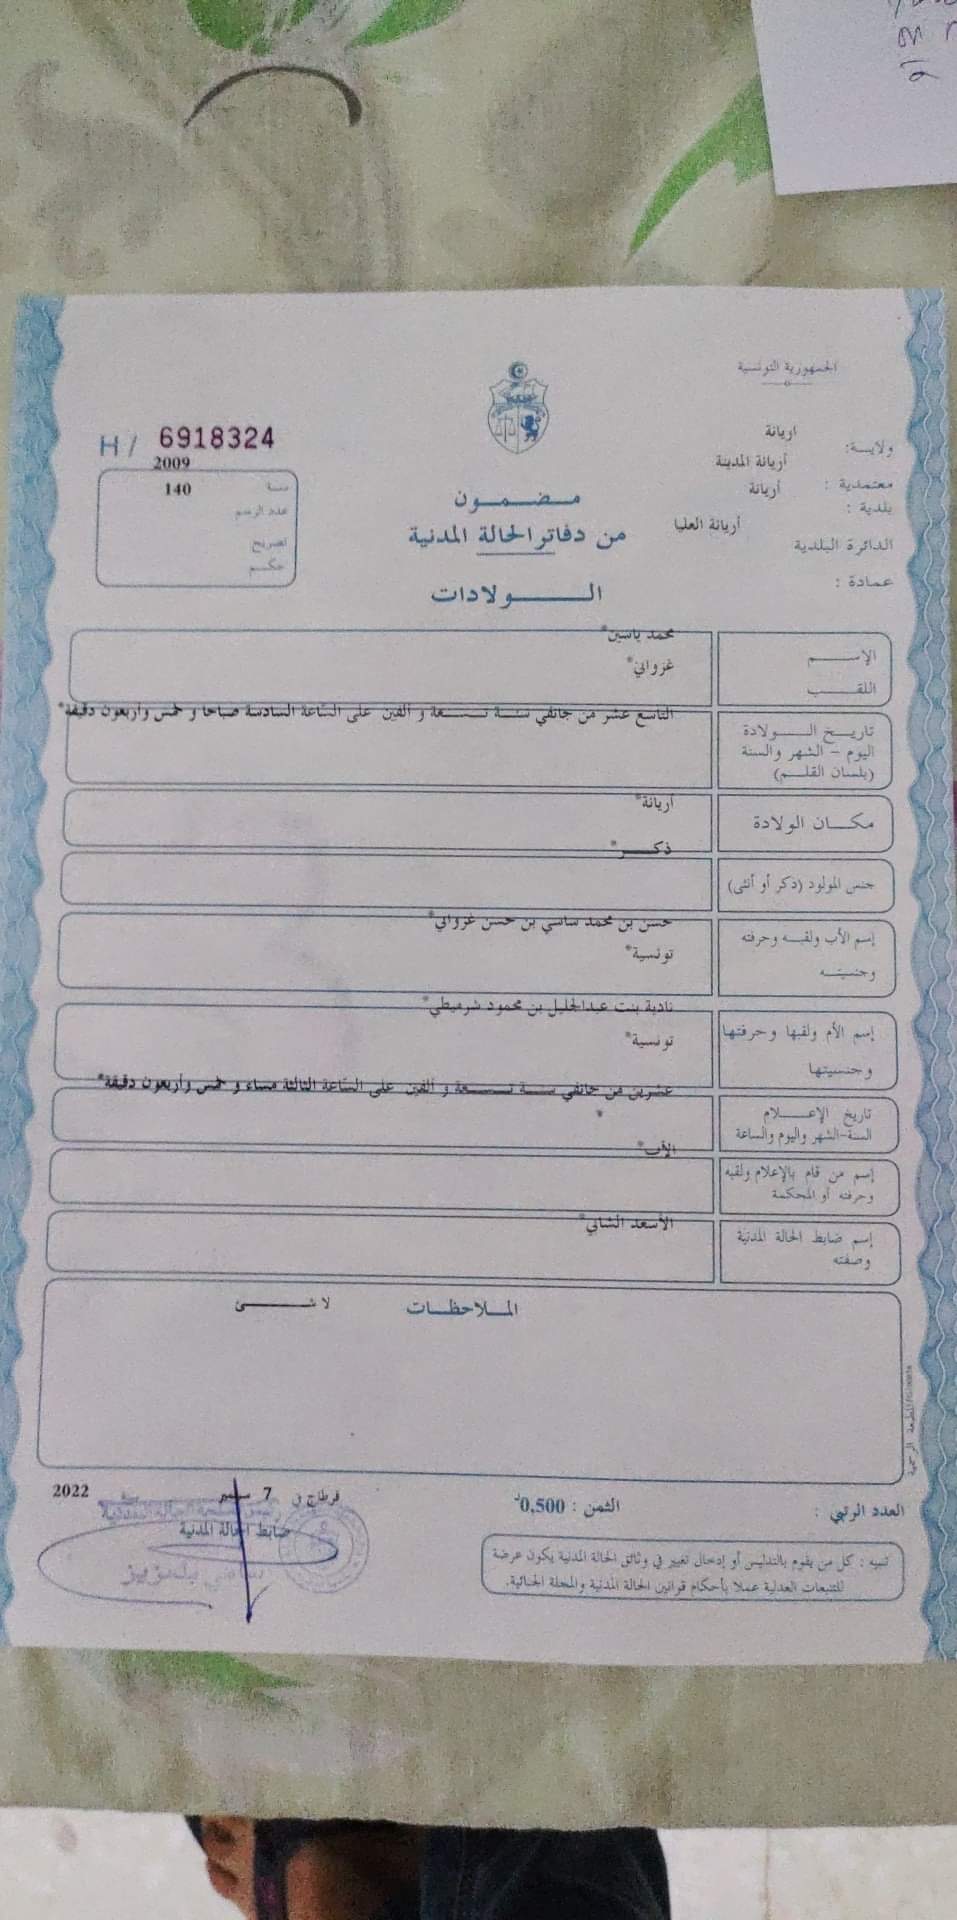 الجمهورية التونسية
ولايـــة: اريانة
أريانة المدينة
معتمدية : أريانة
بلدية :
أريانة العليا
الدائرة البلدية
عمادة :
H / 6918324
2009
سنة 140
عدد الرسم
حكـم
مـضـمـون
من دفاتر الحالة المدنية
الـــولادات
الإســـم محمد ياسين*
اللقـــب غزواني*
تاريـخ الـــولادة التاسع عشر من جانفي سنـة تـسـعة و ألفين على الساعة السادسة صباحا و خمس وأربعون دقيقة*
اليوم - الشهر والسنة
(بلسان القلـم)
مكـان الولادة أريانة*
ذكـــر*
جنس المولود (ذكر أو أنثى)
إسم الأب ولقبـه وحرفته حسن بن محمد ساسي بن حسن غزواني*
وجنسيتـه تونسية*
إسم الأم ولقبها وحرفتها نادية بنت عبدالجليل بن محمود شرميطي*
وجنسيتها تونسية*
تاريخ الإعـــلام عشرين من جانفي سنـة تـسـعة و ألفين على الساعة الثالثة مساء و خمس وأربعون دقيقة*
السنة-الشهر واليوم والساعة *
الأب*
إسم من قام بالإعلام ولقبه
وحرفته أو المحكمة
إسم ضابط الحالة المدنية الأسعد الشابي*
وصفته
المـلاحظـات لا شـــئ
المطبعة الرسمية
العدد الرتبي : الثمن : 0,500د
قرطاج في 7 سبتمبر سنة 2022
ضابط الحالة المدنية
تنبيه : كل من يقوم بالتدليس أو إدخال تغيير في وثائق الحالة المدنية يكون عرضة
للتتبعات العدلية عملا بأحكام قوانين الحالة المدنية والمجلة الجنائية.